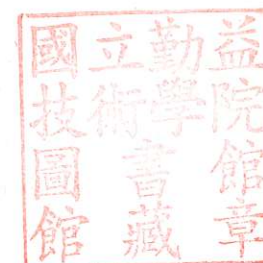 國立勤益
技術學院
圖書館
館藏章